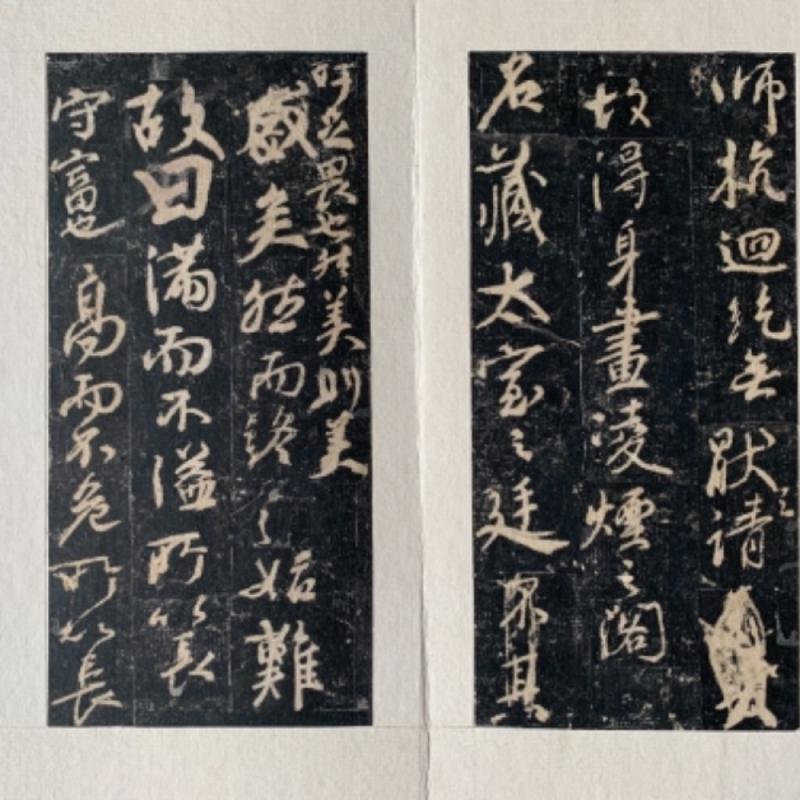 师抗迴紇無猒之請
故得身畫凌煙之閣
名藏太室之廷
吁足畏也然美則美
矣然而終之始難
故曰滿而不溢所以長
守富也高而不危所以長